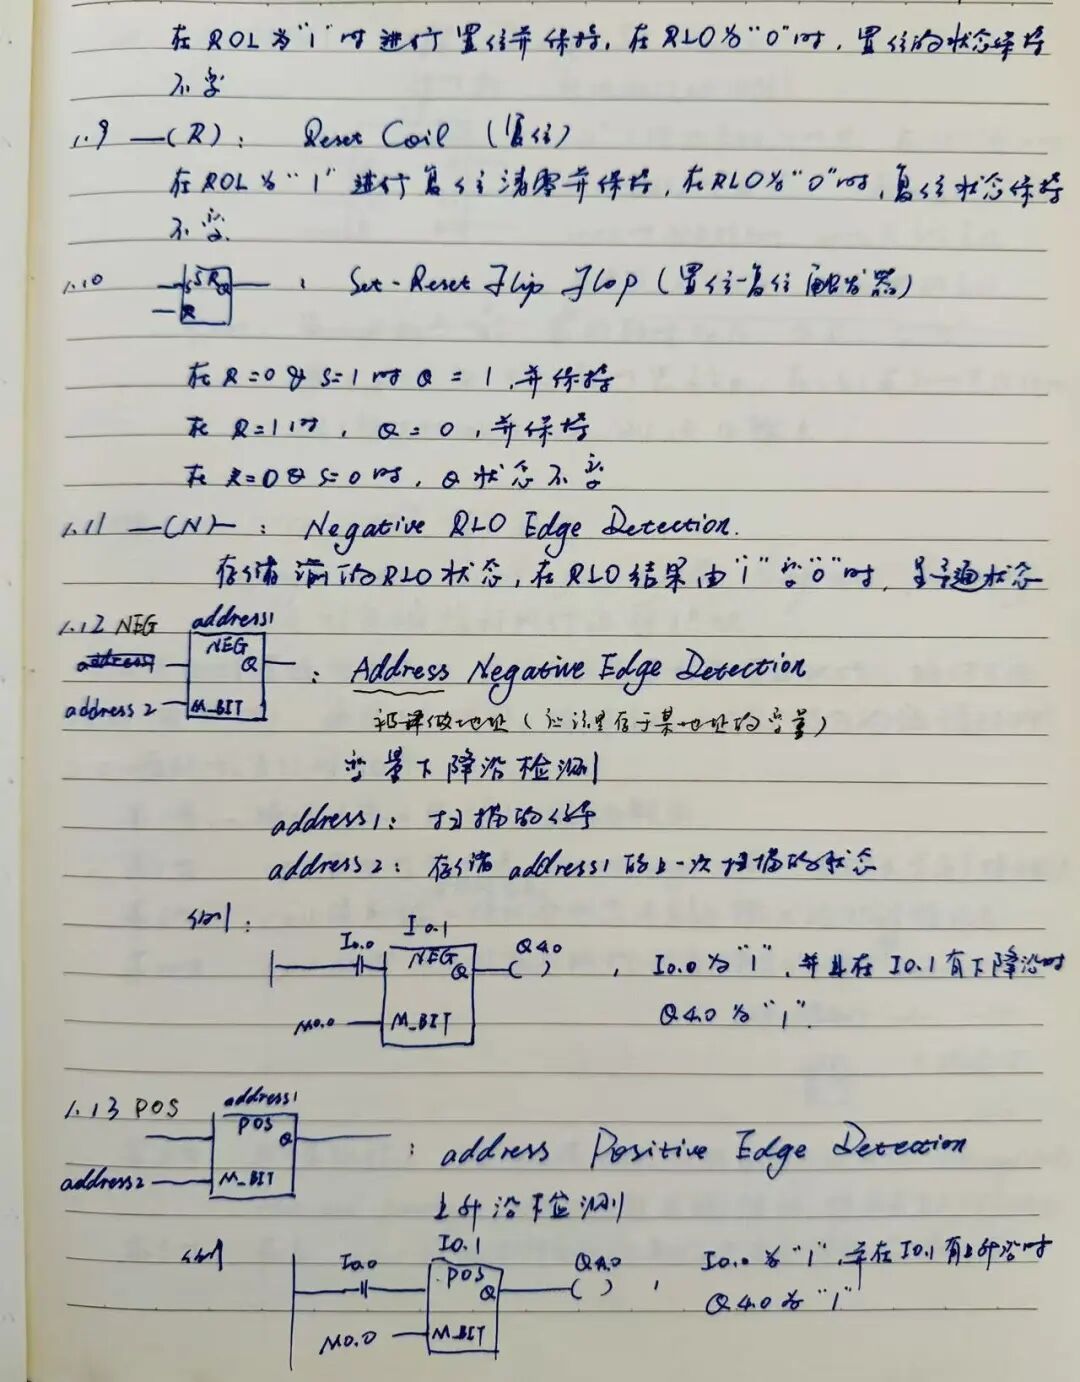 在ROL为"1"时进行置位并保持,在RLO为"0"时,置位的状态保持
不变
1.9 —(R): Reset Coil (复位)
在ROL为"1"进行复位清零并保持,在RLO为"0"时,复位状态保持
不变.
1.10 SR S Q R : Set-Reset Flip Flop (置位-复位触发器)
在R=0&S=1时Q=1,并保持
在R=1时,Q=0,并保持
在R=0&S=0时,Q状态不变
1.11 —(N)— : Negative RLO Edge Detection.
存储前的RLO状态,在RLO结果由"1"变"0"时,呈导通状态
1.12 NEG address1
NEG Q : Address Negative Edge Detection
address2 M_BIT
被译做地址(应该是存于某地址的变量)
变量下降沿检测
address1: 扫描的信号
address2: 存储address1的上一次扫描的状态
例:
I0.0 I0.1 NEG Q Q4.0 , I0.0为"1",并且在I0.1有下降沿时
M0.0 M_BIT Q4.0为"1".
1.13 POS address1
POS Q : address Positive Edge Detection
address2 M_BIT
上升沿检测
例 I0.0 I0.1 POS Q Q4.0 , I0.0为"1",并在I0.1有上升沿时
Q4.0为"1"
M0.0 M_BIT